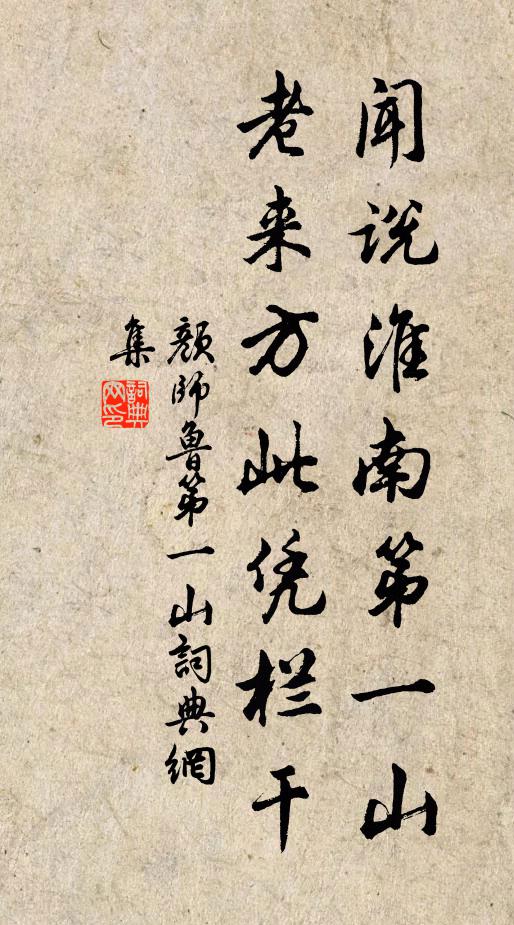 闻说淮南第一山
老来方此凭栏干
颜师鲁第一山詞典網
集
詞典
网印